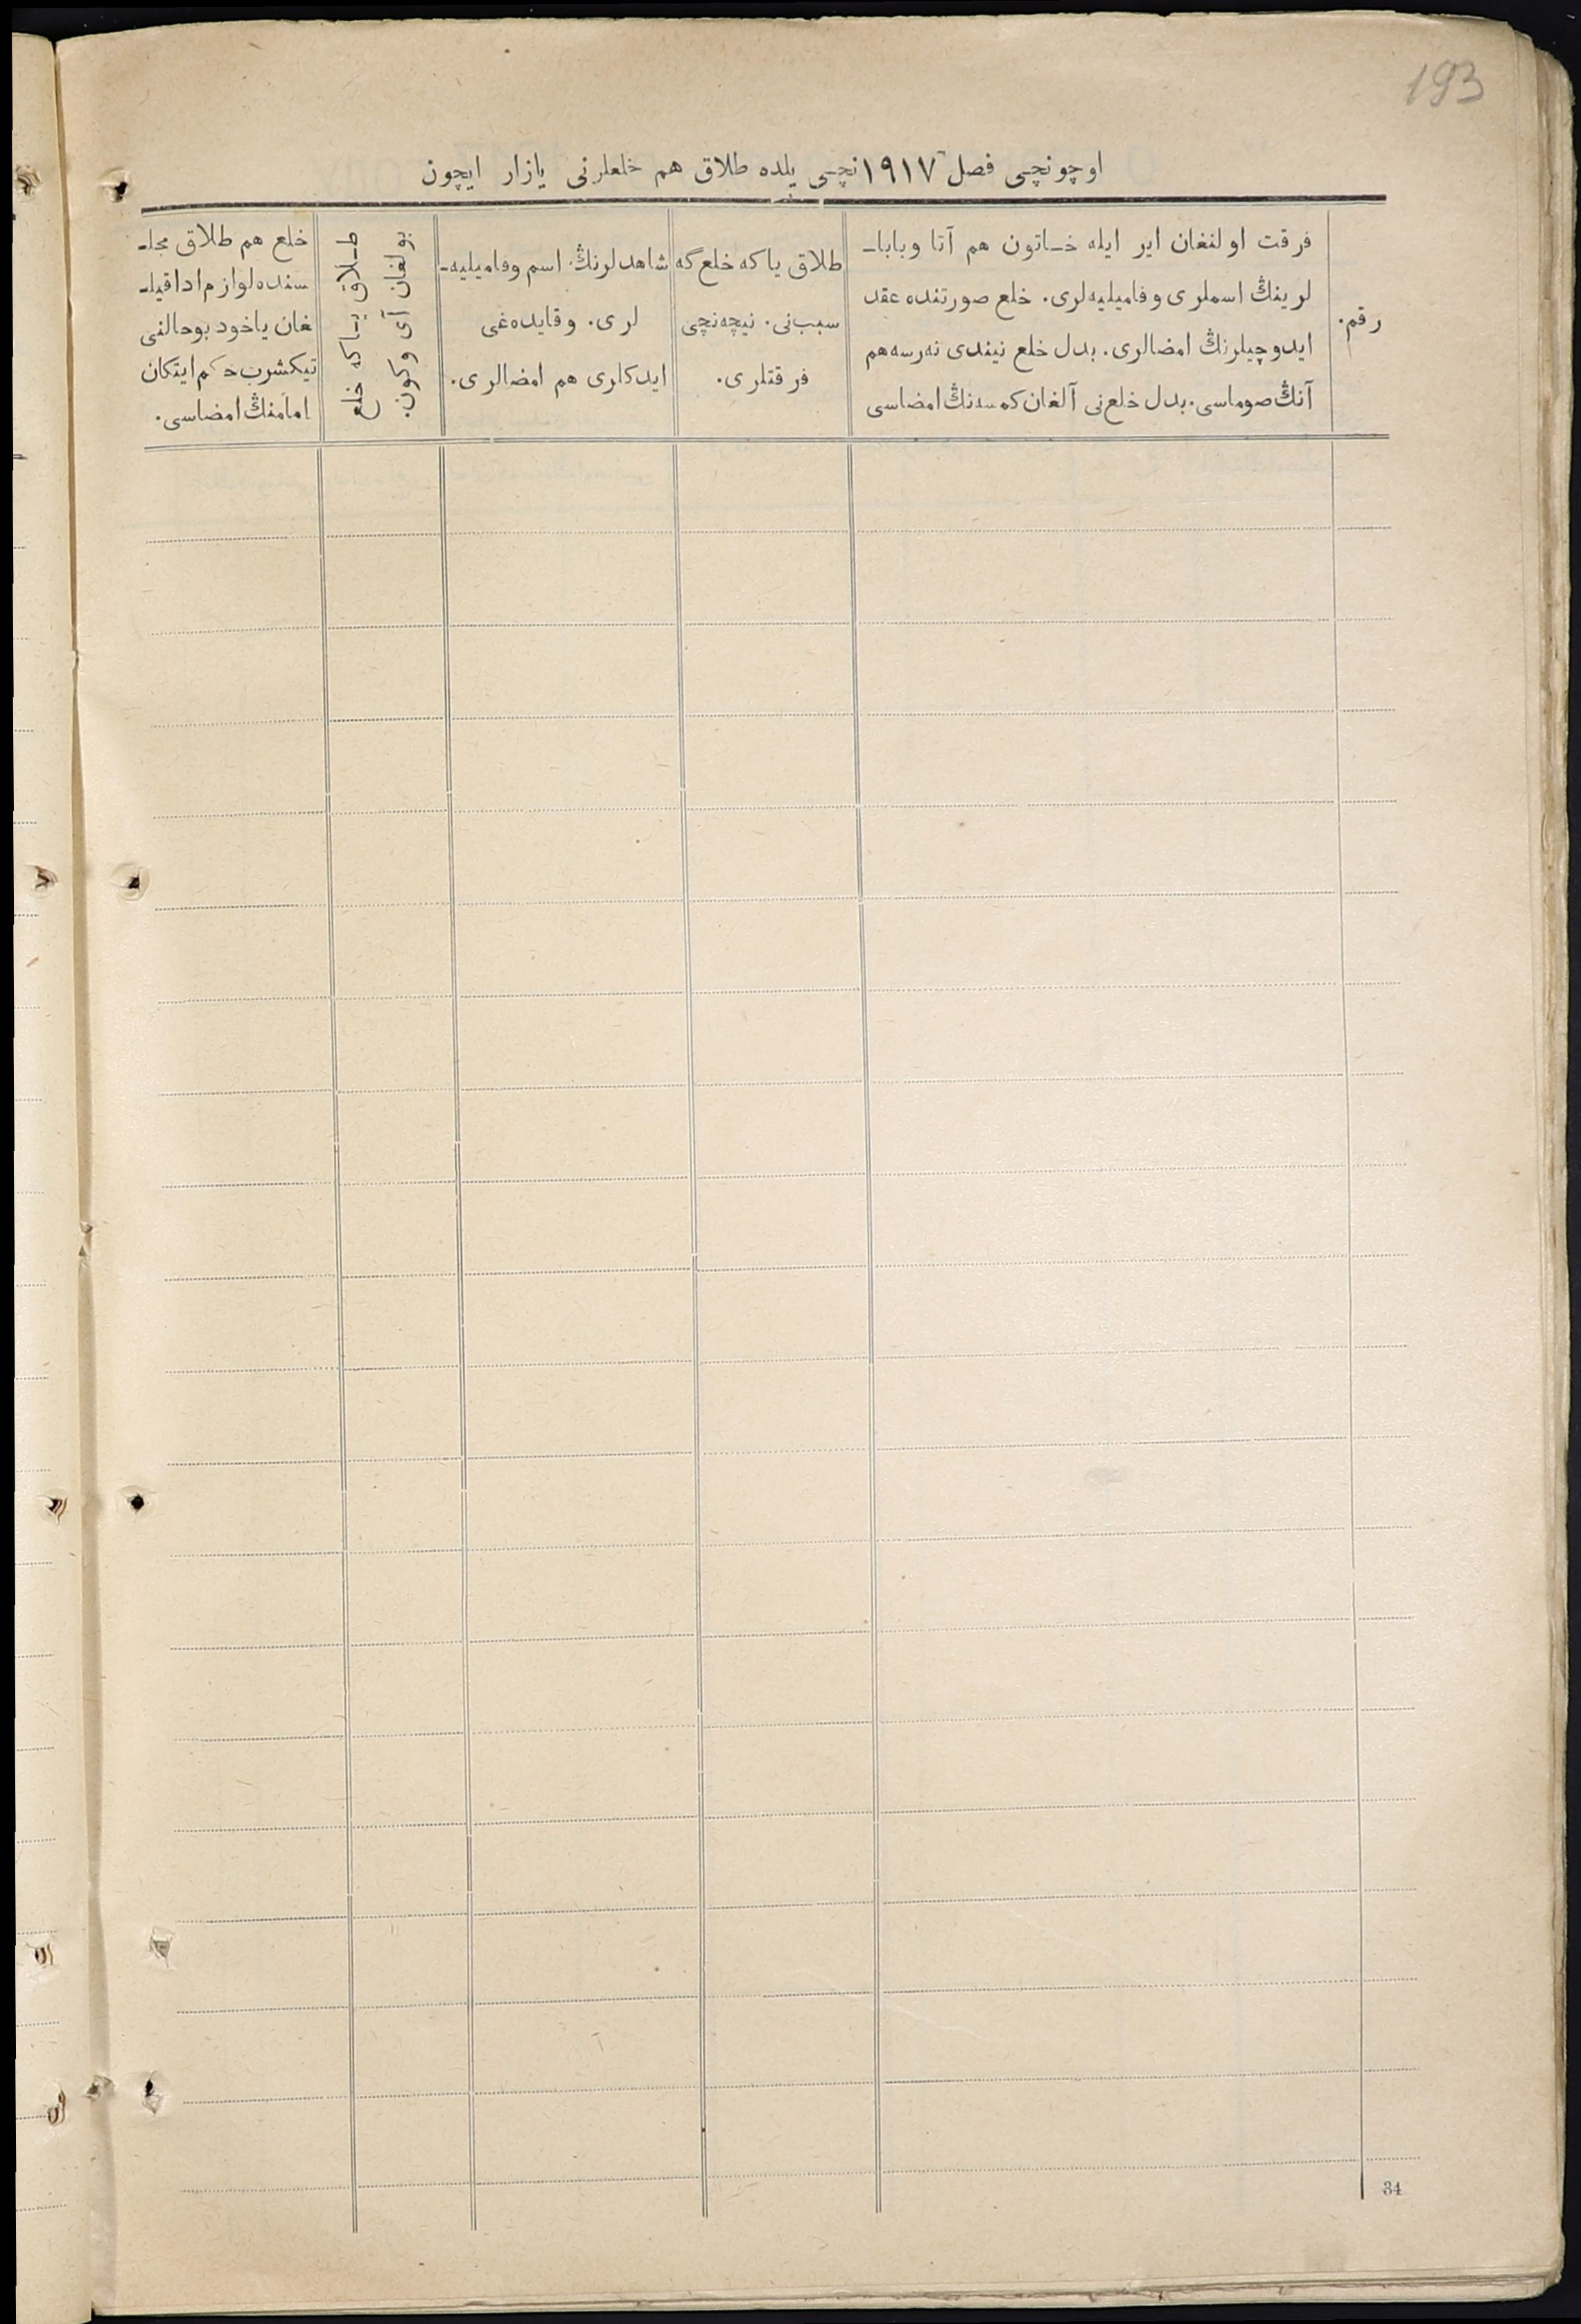 193
اوچونچی فصل ١٩١٧نچی یلده طلاق هم خلعلرنی یازار ایچون
رقم.
فرقت اولنغان ایر ایله خاتون هم آتا وبابا-
لرینڭ اسملری وفامیلیه‌لری. خلع صورتنده عقد
ایدوچیلرنڭ امضالری. بدل خلع نیندی نه‌رسه هم
آنڭ صوماسی. بدل خلع‌نی آلغان کمسه‌نڭ امضاسی
طلاق یاکه خلع گه
سبب‌نی. نیچه‌نچی
فرقتلری.
شاهدلرنڭ اسم وفامیلیه-
لری. وقایده‌غی
ایدکلری هم امضالری.
طلاق یاکه خلع
بولغان آی وکون.
خلع هم طلاق مجلـ
سنده لوازم ادا قیلـ
غان یاخود بوحالنی
تیکشرب حکم ایتکان
امامنڭ امضاسی.
34